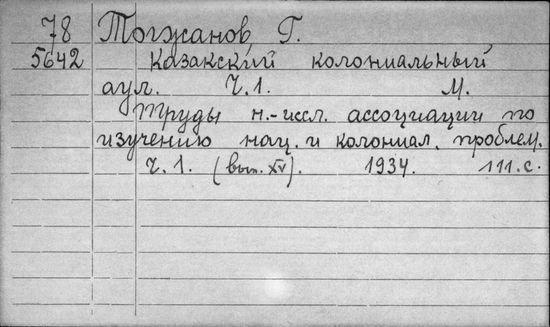 78 Тогжанов Г.
5642 Казакский колониальный
аул. Ч.1. М.
Труды н.-иссл. ассоциации по
изучению нац. и колониал. проблем.
Ч.1. (вып. XV). 1934. 111.с.